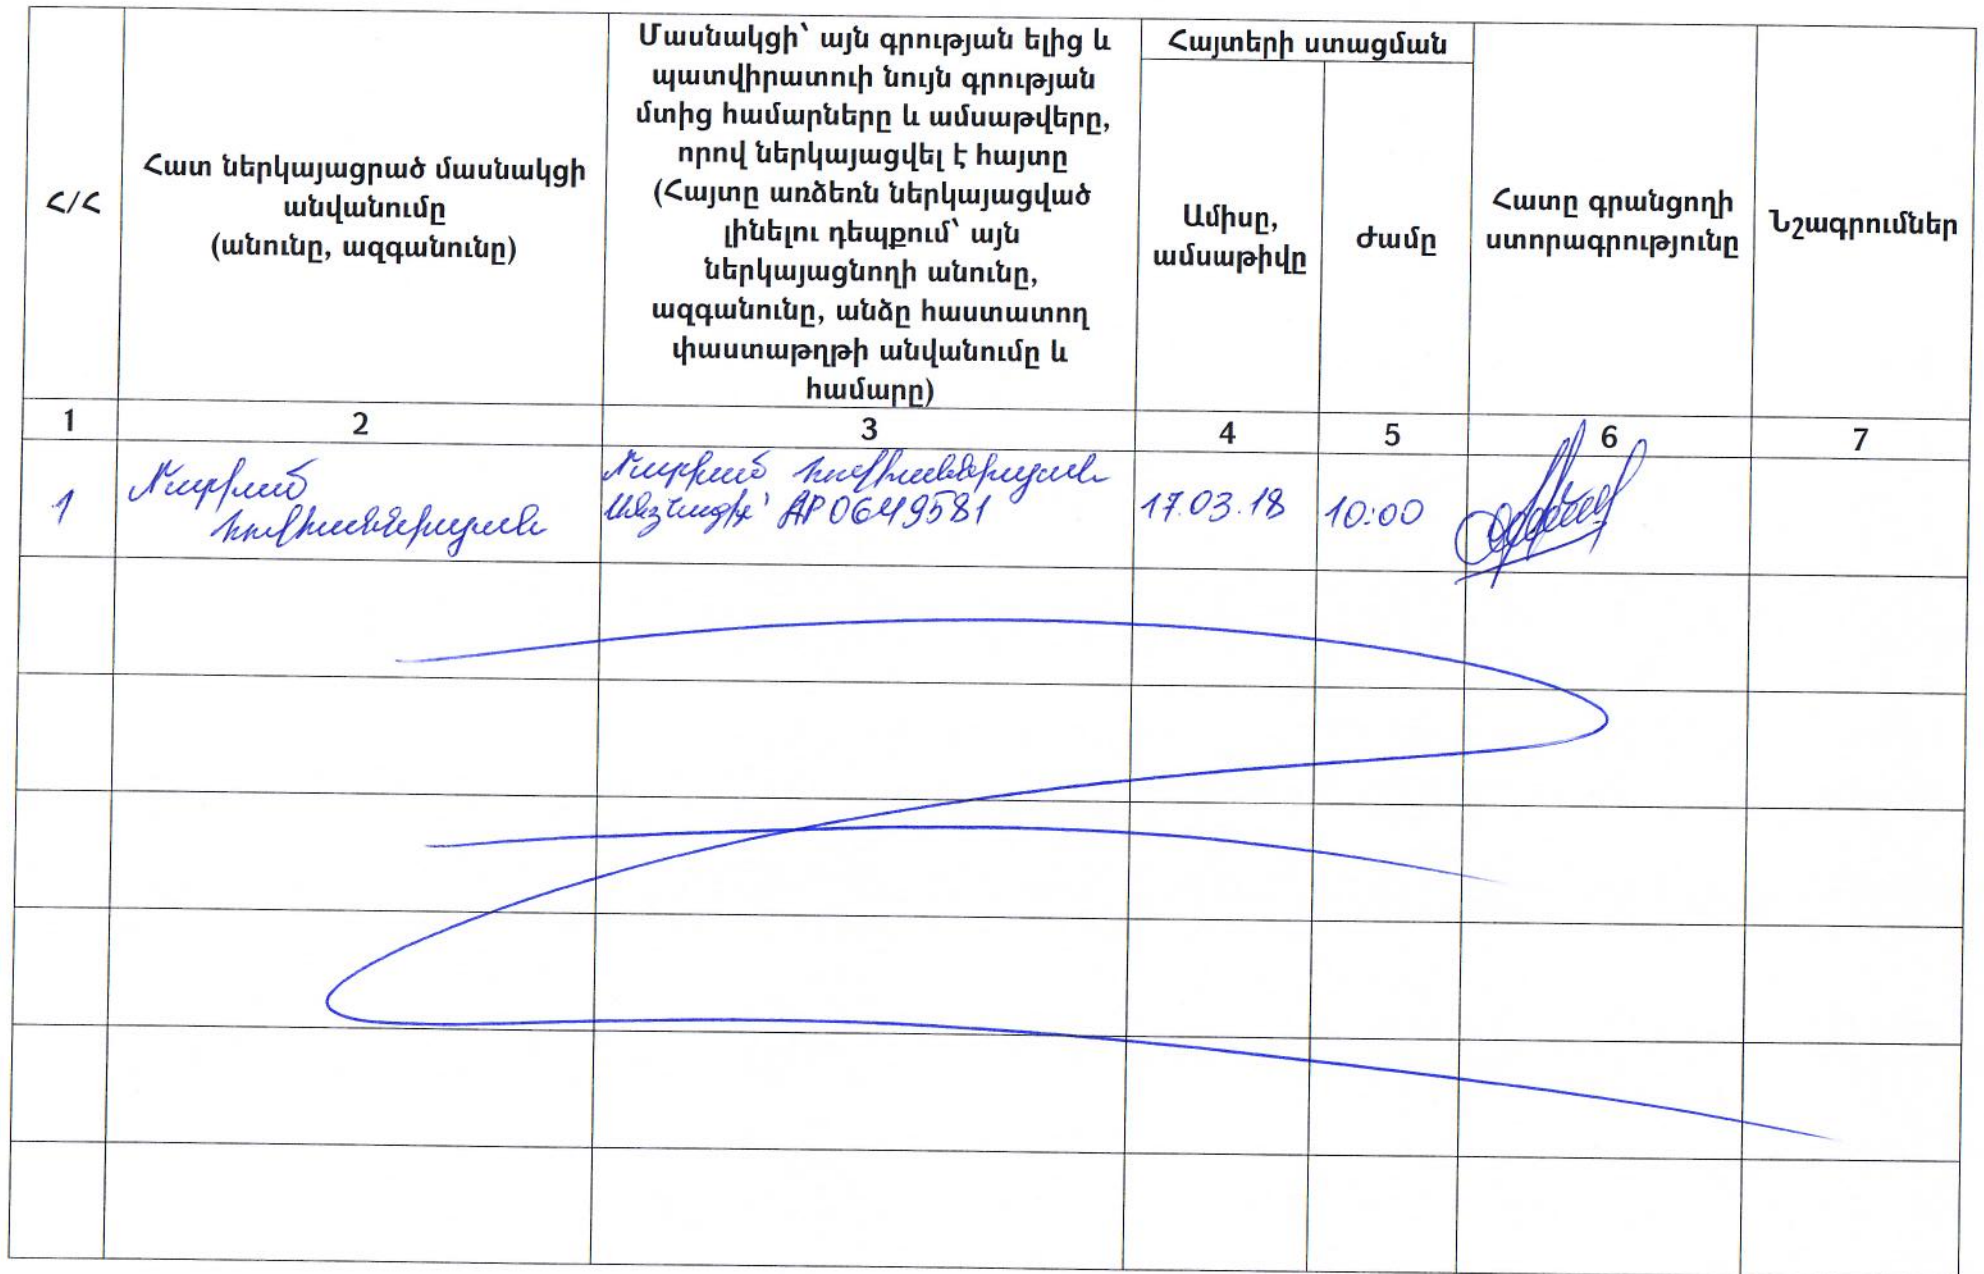 Հ/Հ
Հատ ներկայացրած մասնակցի
անվանումը
(անունը, ազգանունը)
Մասնակցի՝ այն գրության ելից և
պատվիրատուի նույն գրության
մտից համարները և ամսաթվերը,
որով ներկայացվել է հայտը
(Հայտը առձեռն ներկայացված
լինելու դեպքում՝ այն
ներկայացնողի անունը,
ազգանունը, անձը հաստատող
փաստաթղթի անվանումը և
համարը)
Հայտերի ստացման
Ամիսը,
ամսաթիվը
Ժամը
Հատը գրանցողի
ստորագրությունը
Նշագրումներ
1 2 3 4 5 6 7
1
Մարիամ
Հովհաննիսյան
Մարիամ Հովհաննիսյան
AP0649581
17.03.18
10:00